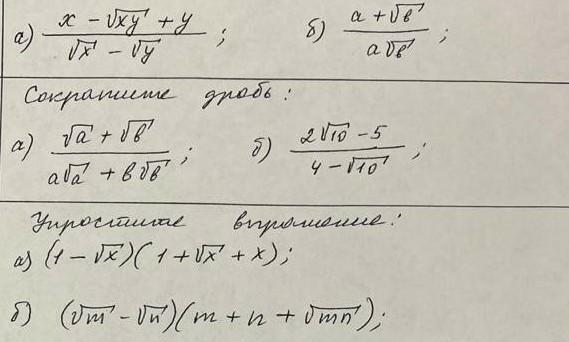 а) (x - √xy + y) / (√x - √y) ; б) (a + √b) / (a√b) ;
Сократите дробь:
а) (√a + √b) / (a√a + b√b) ; б) (2√10 - 5) / (4 - √10) ;
Упростите выражение:
а) (1 - √x)(1 + √x + x);
б) (√m - √n)(m + n + √mn);